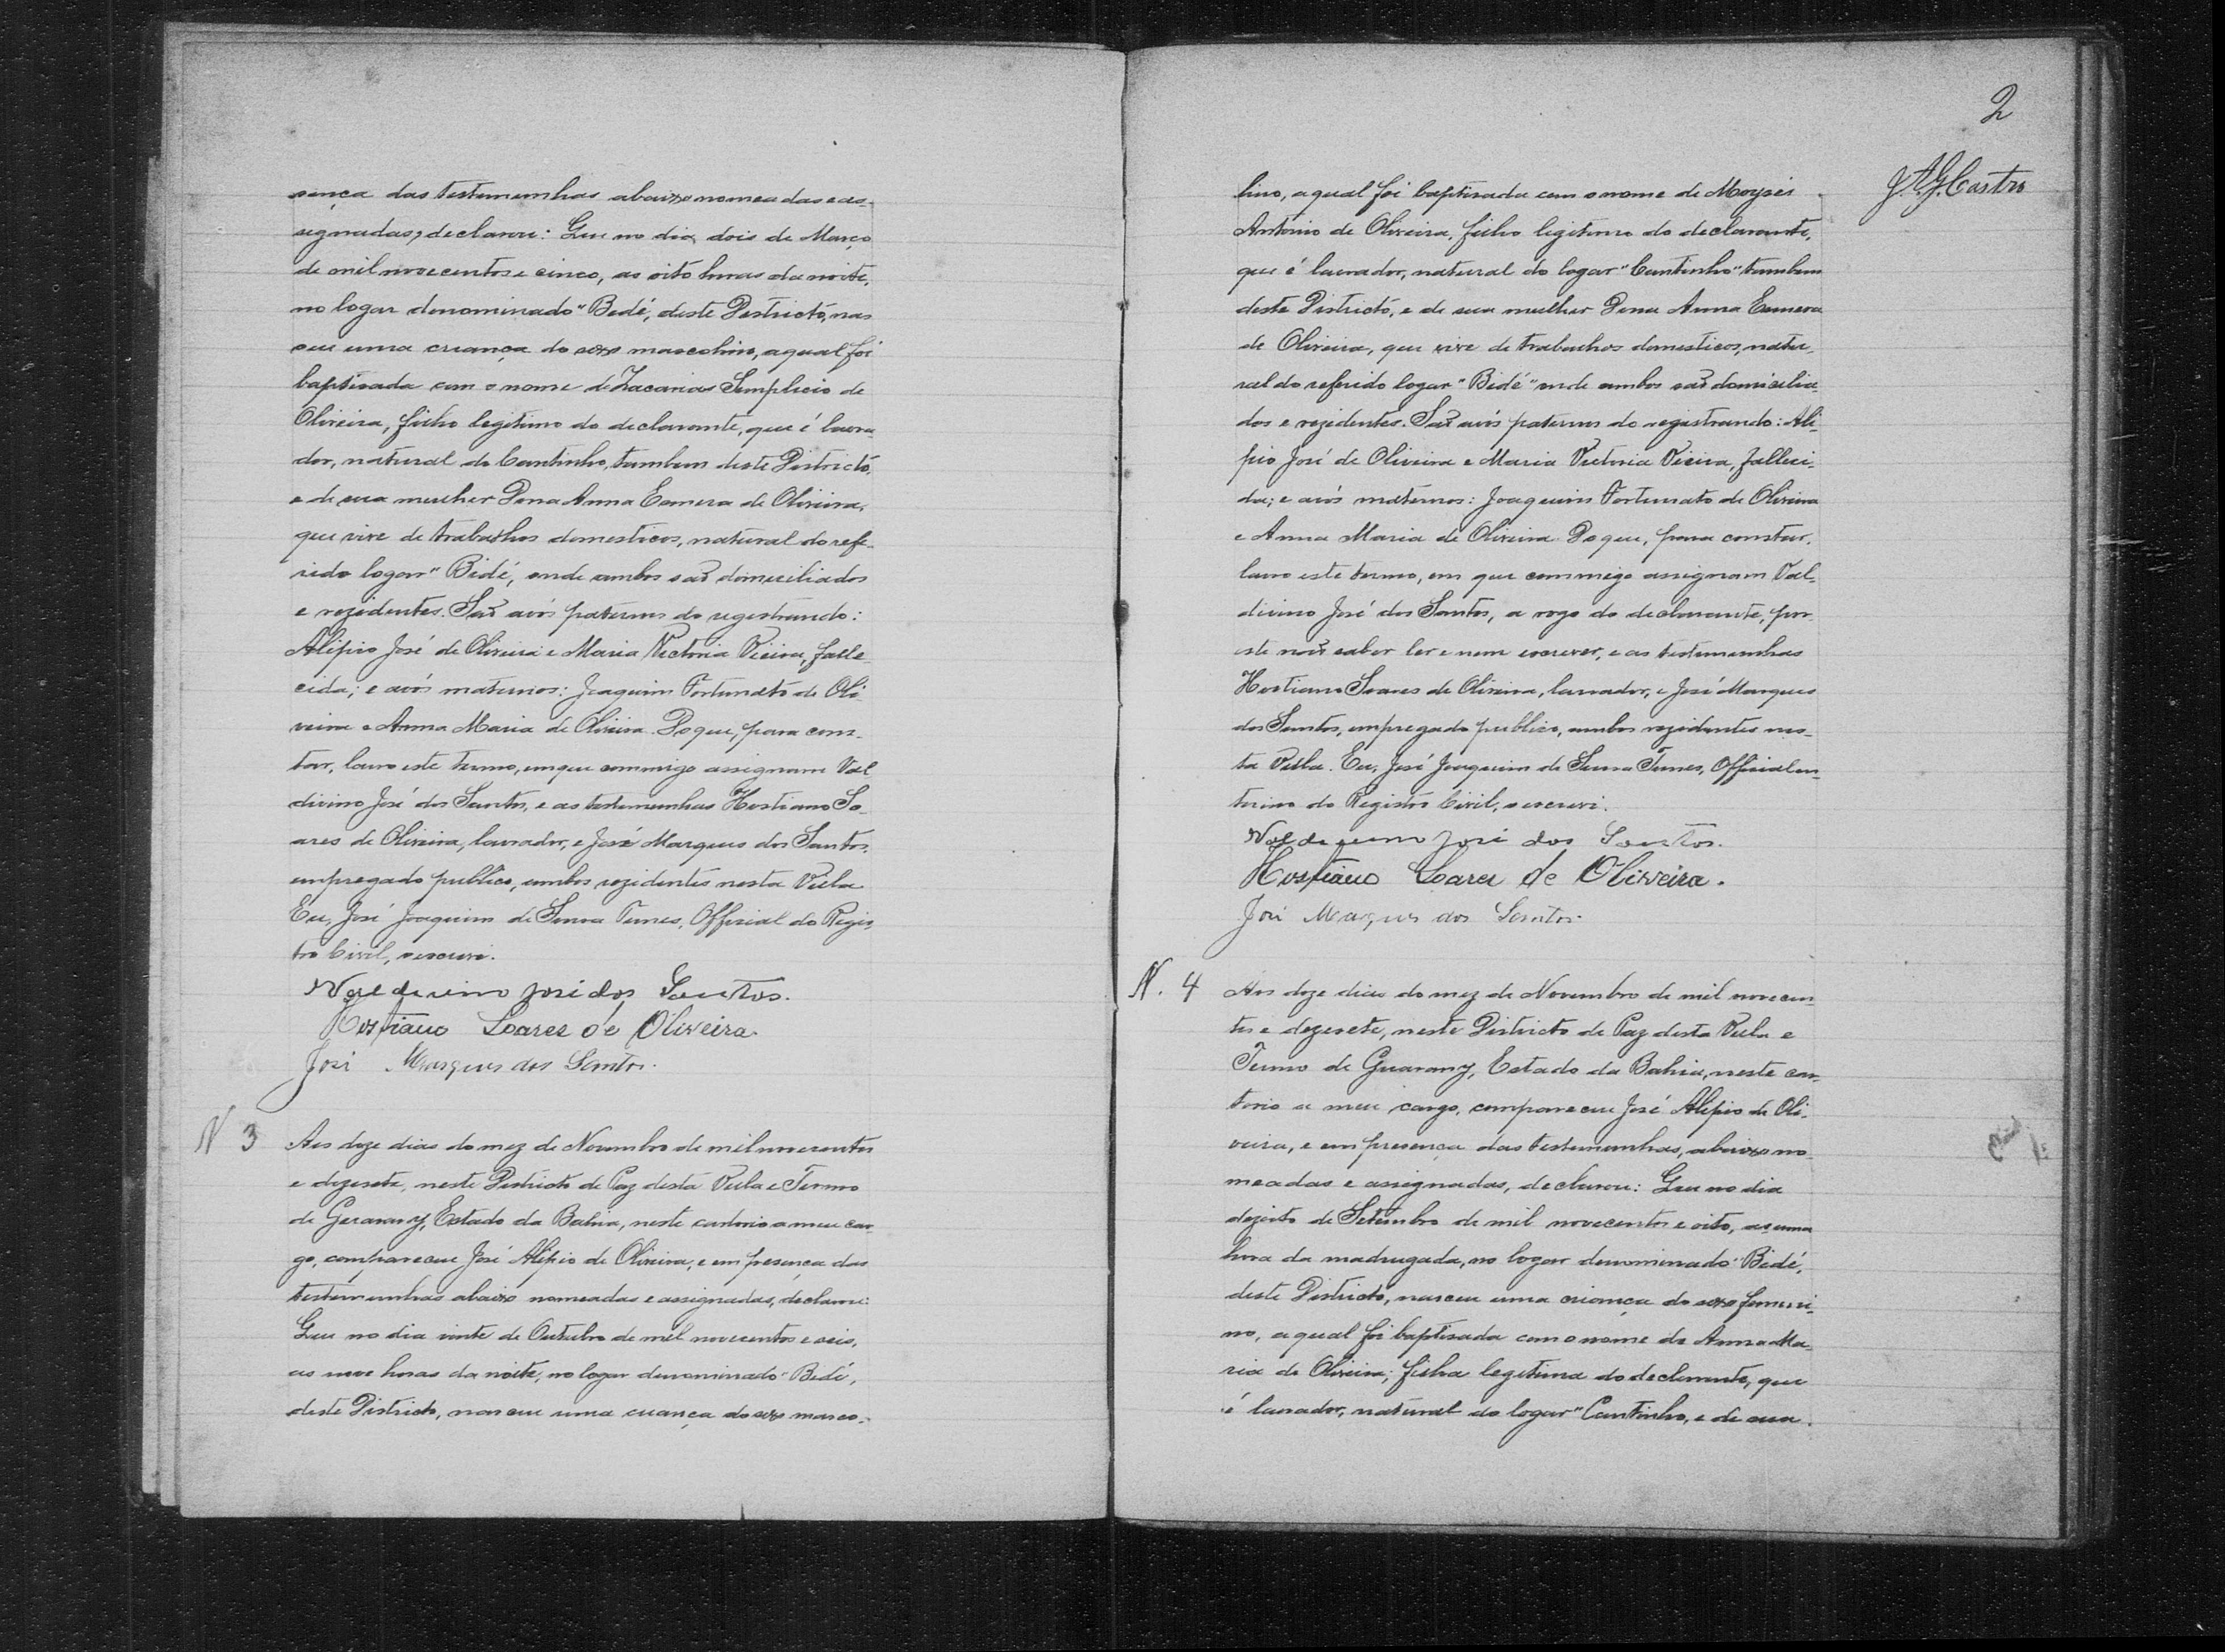 sença das testemunhas abaixo nomeadas e as-
signadas, declarou: Que no dia dois de Março
de mil novecentos e cinco, as oito horas da noite,
no logar denominado "Bedé, deste Districto, nas
ceu uma criança do sexo mascolino, a qual foi
baptisada com o nome de Zacarias Simplicio de
Oliveira, filho legitimo do declarante, que é lavra
dor, natural do Cantinho, tambem deste Districto,
e de sua mulher Dona Anna Esmera de Oliveira,
que vive de trabalhos domesticos, natural do refe-
rido logar "Bidé, onde ambos são domiciliados
e rezidentes. São avós paternos do registrando:
Alipio José de Oliveira e Maria Victoria Vieira, falle
cida; e avós maternos: Joaquim Fortunato de Oli
veira e Anna Maria de Oliveira. Do que, para cons-
tar, lavro este termo, em que commigo assignam Val
divino José dos Santos, e as testemunhas Hostiano So
ares de Oliveira, lavrador, e José Marques dos Santos,
empregado publico, ambos rezidentes nesta Villa.
Eu, José Joaquim de Senna Tunes, Official do Regis
tro Civil, o escrevi.
Valdevino José dos Santos.
Hostiano Soares de Oliveira.
José Marques dos Santos.
N 3 Aos doze dias do mez de Novembro de mil novecentos
e dezesete, neste Districto de Paz desta Villa e Termo
de Guarany, Estado da Bahia, neste cartorio a meu car
go, compareceu José Alipio de Oliveira, e em presença das
testemunhas abaixo nomeadas e assignadas, declarou:
Que no dia vinte de Outubro de mil novecentos e seis,
as nove horas da noite, no logar denominado "Bedé,
deste Districto, nasceu uma criança do sexo masco-
2
J. A. G. Castro
lino, a qual foi baptisada com o nome de Moysés
Antonio de Oliveira, filho legitimo do declarante,
que é lavrador, natural do logar "Cantinho" tambem
deste Districto, e de sua mulher Dona Anna Esmera
de Oliveira, que vive de trabalhos domesticos, natu-
ral do referido logar "Bidé" onde ambos são domicilia
dos e rezidentes. São avós paternos do registrando: Ali-
pio José de Oliveira e Maria Victoria Vieira, falleci-
da; e avós maternos: Joaquim Fortunato de Oliveira
e Anna Maria de Oliveira. Do que, para constar,
lavro este termo, em que commigo assignam Val-
divino José dos Santos, a rogo do declarante, por
este não saber ler e nem escrever, e as testemunhas
Hostiano Soares de Oliveira, lavrador, e José Marques
dos Santos, empregado publico, ambos rezidentes nes-
ta Villa. Eu, José Joaquim de Senna Tunes, Official in-
terino do Registro Civil, o escrevi.
Valdevino José dos Santos.
Hostiano Soares de Oliveira.
José Marques dos Santos.
N. 4 Aos doze dias do mez de Novembro de mil novecen
tos e dezesete, neste Districto de Paz desta Villa e
Termo de Guarany, Estado da Bahia, neste car
torio a meu cargo, compareceu José Alipio de Oli-
veira, e em presença das testemunhas, abaixo no
meadas e assignadas, declarou: Que no dia
dezoito de Setembro de mil novecentos e oito, as uma
hora da madrugada, no logar denominado "Bidé,
deste Districto, nasceu uma criança do sexo femini-
no, a qual foi baptisada com o nome de Anna Ma
ria de Oliveira; filha legitima do declarante, que
é lavrador, natural do logar "Cantinho, e de sua